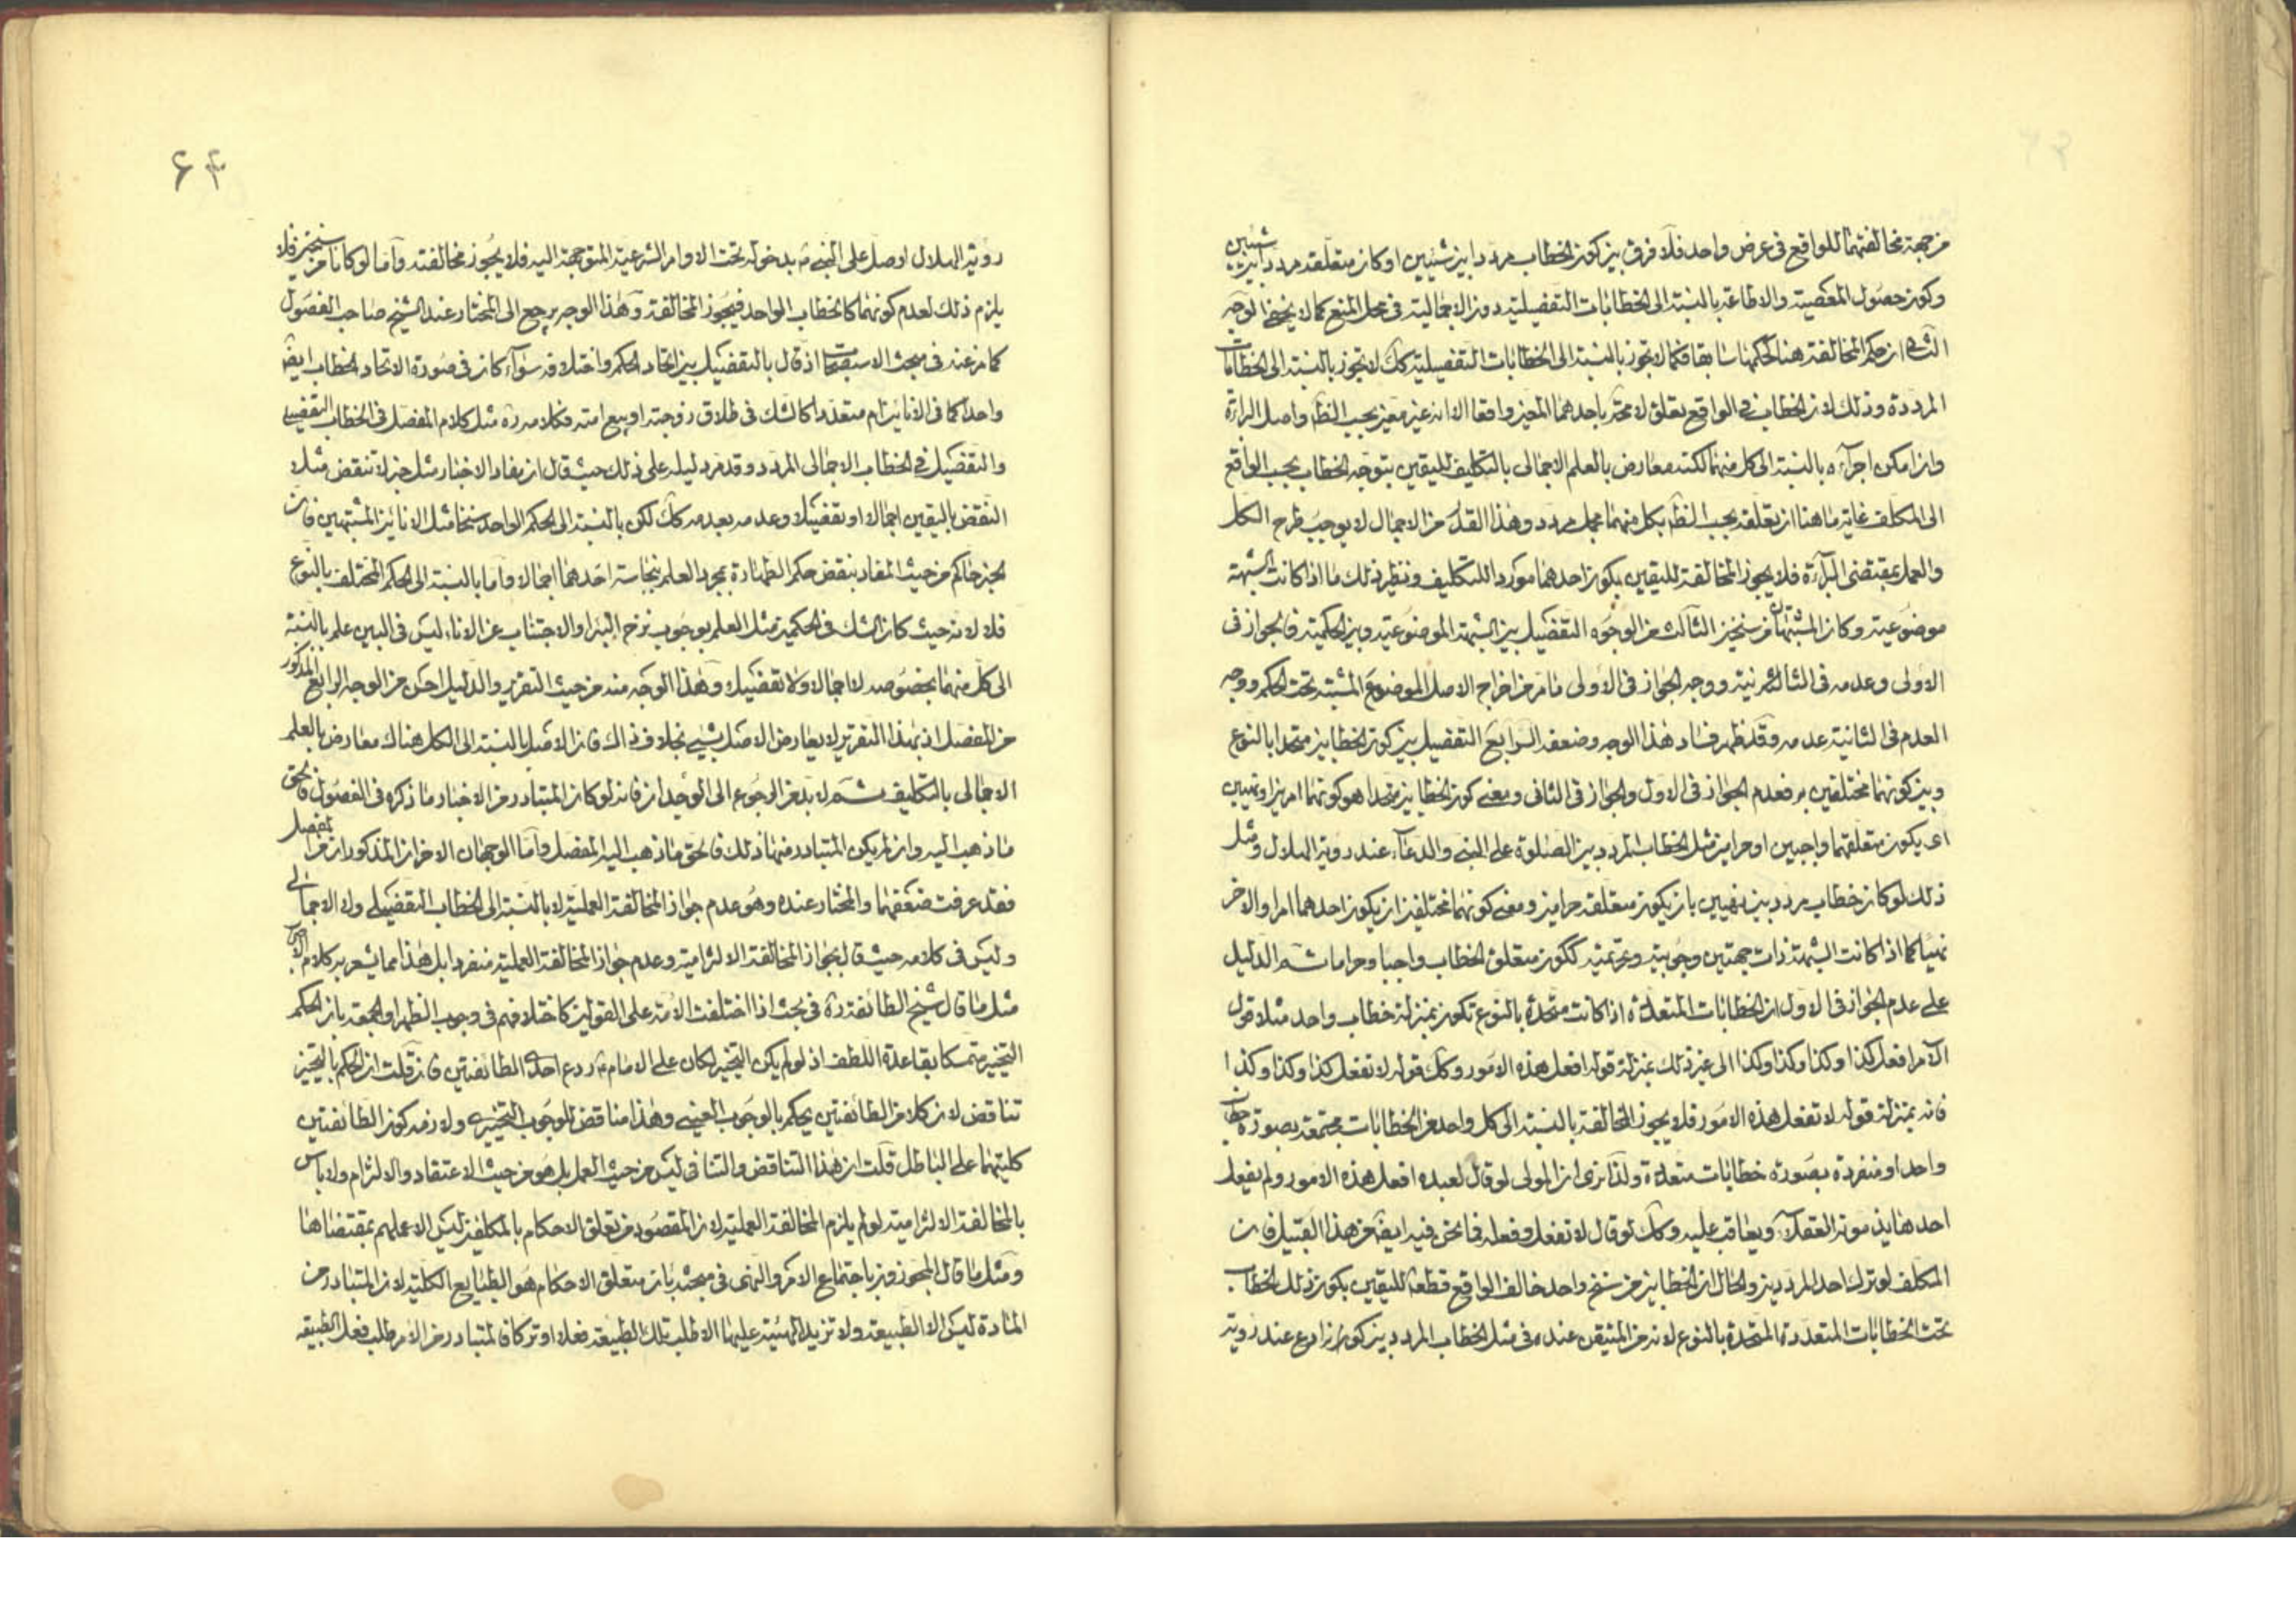 من جهة مخالفتهما للواقع فى عرض واحد فلا فرق بين كون الخطاب مرددا بين شيئين او كان متعلقه مرددا بين شيئين
وكون حصول المعصية والاطاعة بالنسبة الى الخطابات التفصيلية دون الاجمالية فى محل المنع كما لا يخفى الوجه
الثانى ان حكم المخالفة هنا كحكمها سابقا فكما لا تجوز بالنسبة الى الخطابات التفصيلية كك لا تجوز بالنسبة الى الخطابات
المرددة وذلك لان الخطاب فى الواقع تعلق لا محة باحدهما المعين واقعا الا انه غير معين بحسب الظ واصل البرائة
وان امكن اجرآءه بالنسبة الى كل منهما لكنه معارض بالعلم الاجمالى بالتكليف لليقين بتوجه الخطاب بحسب الواقع
الى المكلف غاية ما هنا ان تعلقه بحسب الظ بكل منهما مجمل مردد وهذا القدر من الاجمال لا يوجب طرح الكل
والعمل بمقتضى البرآءة فلا يجوز المخالفة لليقين بكون احدهما موردا للتكليف ونظير ذلك ما اذا كانت الشبهة
موضوعية وكان المشتبهان من سنخين الثالث من الوجوه التفصيل بين الشبهة الموضوعية وبين الحكمية فالجواز فى
الاولى وعدمه فى الثانية ووجه الجواز فى الاولى ما مر من اخراج الاصل الموضوع المشتبه تحت الحكم ووجه
العدم فى الثانية عدمه وقد ظهر فساد هذا الوجه وضعفه الرابع التفصيل بين كون الخطابين متحدا بالنوع
وبين كونهما مختلفين به فعدم الجواز فى الاول والجواز فى الثانى ومعنى كون الخطابين متحدا هو كونهما امرين او نهيين
اى يكون متعلقهما واجبين او حرامين مثل الخطاب المردد بين الصلوة على النبى والدعآء عند روية الهلال ومثل
ذلك لو كان خطاب مردد بين نهيين بان يكون متعلقه حرامين ومعنى كونهما مختلفين ان يكون احدهما امرا والاخر
نهيا كما اذا كانت الشبهة ذات جهتين وجوبية وتحريمية ككون متعلق الخطاب واجبا وحراما ثم الدليل
على عدم الجواز فى الاول ان الخطابات المتعددة اذا كانت متحدة بالنوع تكون بمنزلة خطاب واحد مثلا قول
الآمر افعل كذا وكذا وكذا وكذا الى غير ذلك بمنزلة قوله افعل هذه الامور وكك قوله لا تفعل كذا وكذا وكذا
فانه بمنزلة قوله لا تفعل هذه الامور فلا يجوز المخالفة بالنسبة الى كل واحد من الخطابات مجتمعة بصورة خطاب
واحد او منفردة بصورة خطابات متعددة ولذا نرى ان المولى لو قال لعبده افعل هذه الامور ولم يفعل
احدها يذمونه العقلآء ويعاقب عليه وكك لو قال لا تفعل وفعله فما نحن فيه ايضا من هذا القبيل فان
المكلف لو ترك احد المرددين والحال ان الخطابين من سنخ واحد خالف الواقع قطعا لليقين بكون ذلك الخطاب
تحت الخطابات المتعددة المتحدة بالنوع لانه من المتيقن عنده فى مثل الخطاب المردد بين كونه ادع عند روية
۶۴
روية الهلال او صل على النبى بدخوله تحت الاوامر الشرعية المتوجهة اليه فلا يجوز مخالفته وآما لو كانا من سنخين فلا
يلزم ذلك لعدم كونهما كالخطاب الواحد فيجوز المخالفة وهذا الوجه يرجع الى المختار عند الشيخ صاحب الفصول
كما مر عنه فى مبحث الاستصحاب اذ قال بالتفصيل بين اتحاد الحكم واختلافه سوآء كان فى صورة الاتحاد الخطاب ايضا
واحدا كما فى الانائين ام متعددا كالشك فى طلاق زوجته او بيع امته فكلامه ره مثل كلام المفصل فى الخطاب التفصيلى
والتفصيل فى الخطاب الاجمالى المردد وقد مر دليله على ذلك حيث قال ان مفاد الاخبار مثل خبر لا تنقض مثلا
النقض باليقين اجمالا او تفصيلا وعدمه بعدمه كك لكن بالنسبة الى الحكم الواحد سنخا مثل الانائين المشتبهين فان
الخبر حاكم من حيث المفاد بنقض حكم الطهارة بمجرد العلم بنجاسة احدهما اجمالا واما بالنسبة الى الحكم المختلف بالنوع
فلا لانه حيث كان الشك فى الحكمين مثل العلم بوجوب نزح البئر او الاجتناب عن الاناء ليس فى البين علم بالنسبة
الى كل منهما بخصوصه لا اجمالا ولا تفصيلا وهذا الوجه منه من حيث التقرير والدليل احسن من الوجه الرابع المذكور
من المفصل اذ بهذا التقرير لا يعارض الاصل بشيئ بخلاف ذاك فان الاصل بالنسبة الى الكل هناك معارض بالعلم
الاجمالى بالتكليف ثم لا بد من الرجوع الى الوجدان فانه لو كان المتبادر من الاخبار ما ذكره فى الفصول فالحق
ما ذهب اليه وان لم يكن المتبادر منها ذلك فالحق ما ذهب اليه المفصل وآما الوجهان الاخران المذكوران من المفصل
فقد عرفت ضعفهما والمختار عنده وهو عدم جواز المخالفة العملية لا بالنسبة الى الخطاب التفصيلى ولا الاجمالى
وليس فى كلامه حيث قال بجواز المخالفة الالتزامية وعدم جواز المخالفة العملية منفردا بل هذا مما يشعر به كلام
مثل ما قال شيخ الطائفة ره فى بحث اذا اختلفت الامة على القولين كاختلافهم فى وجوب الظهر او الجمعة بان الحكم
التخيير متمسكا بقاعدة اللطف اذ لو لم يكن التخيير لكان على الامام ردع احدى الطائفتين فان قلت ان الحكم بالتخيير
تناقض لان كلا من الطائفتين يحكم بالوجوب العينى وهذا مناقض للوجوب التخييرى ولازمه كون الطائفتين
كليتهما على الباطل قلت ان هذا التناقض والتنافى ليس من حيث العمل بل هو من حيث الاعتقاد والالتزام ولا باس
بالمخالفة الالتزامية لو لم يلزم المخالفة العملية لان المقصود من تعلق الاحكام بالمكلفين ليس الا عملهم بمقتضاها
ومثل ما قال المجوزون باجتماع الامر والنهى فى مبحثه بان متعلق الاحكام هو الطبايع الكلية لان المتبادر من
المادة ليس الا الطبيعة ولا تزيد الهيئة عليها الا طلب تلك الطبيعة فعلا او تركا فالمتبادر من الامر طلب فعل الطبيعة